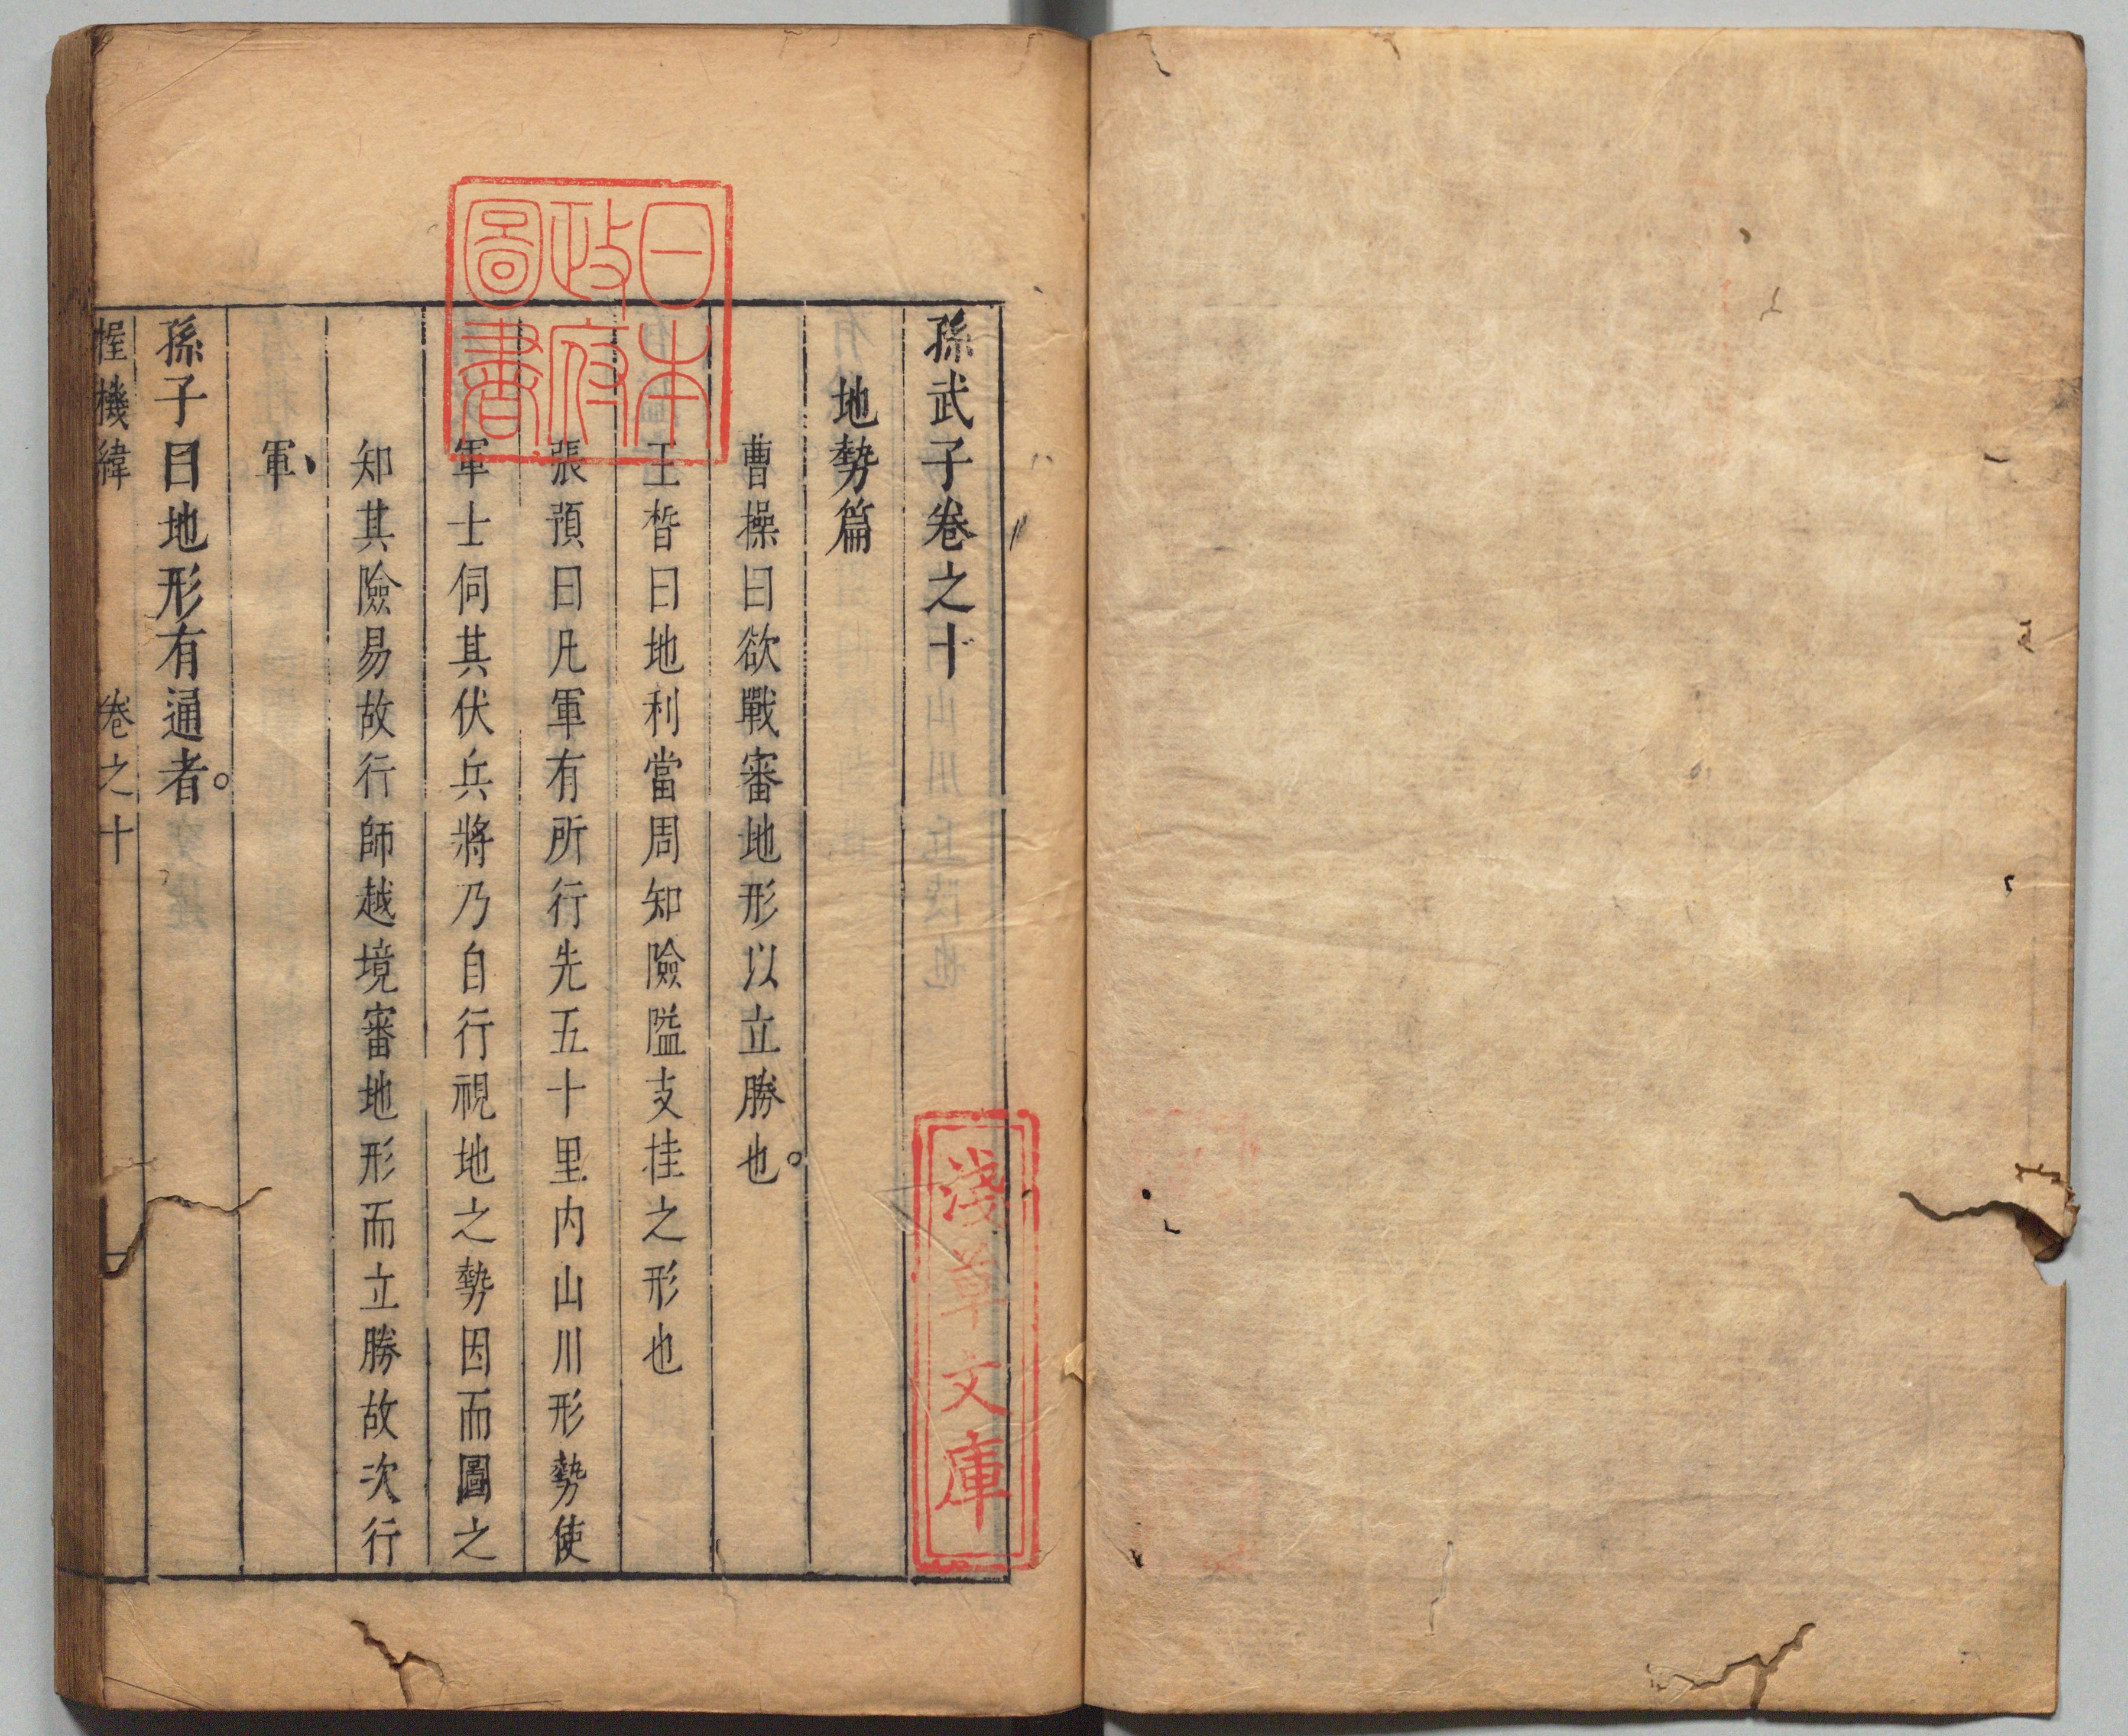 孫武子卷之十
地勢篇
曹操曰欲戰審地形以立勝也。
王晳曰地利當周知險隘支挂之形也
張預曰凡軍有所行先五十里内山川形勢使
軍士伺其伏兵將乃自行視地之勢因而圖之
知其險易故行師越境審地形而立勝故次行
軍、
孫子曰地形有通者。
握機緯 卷之十 一
日本
政府
圖書
淺草文庫